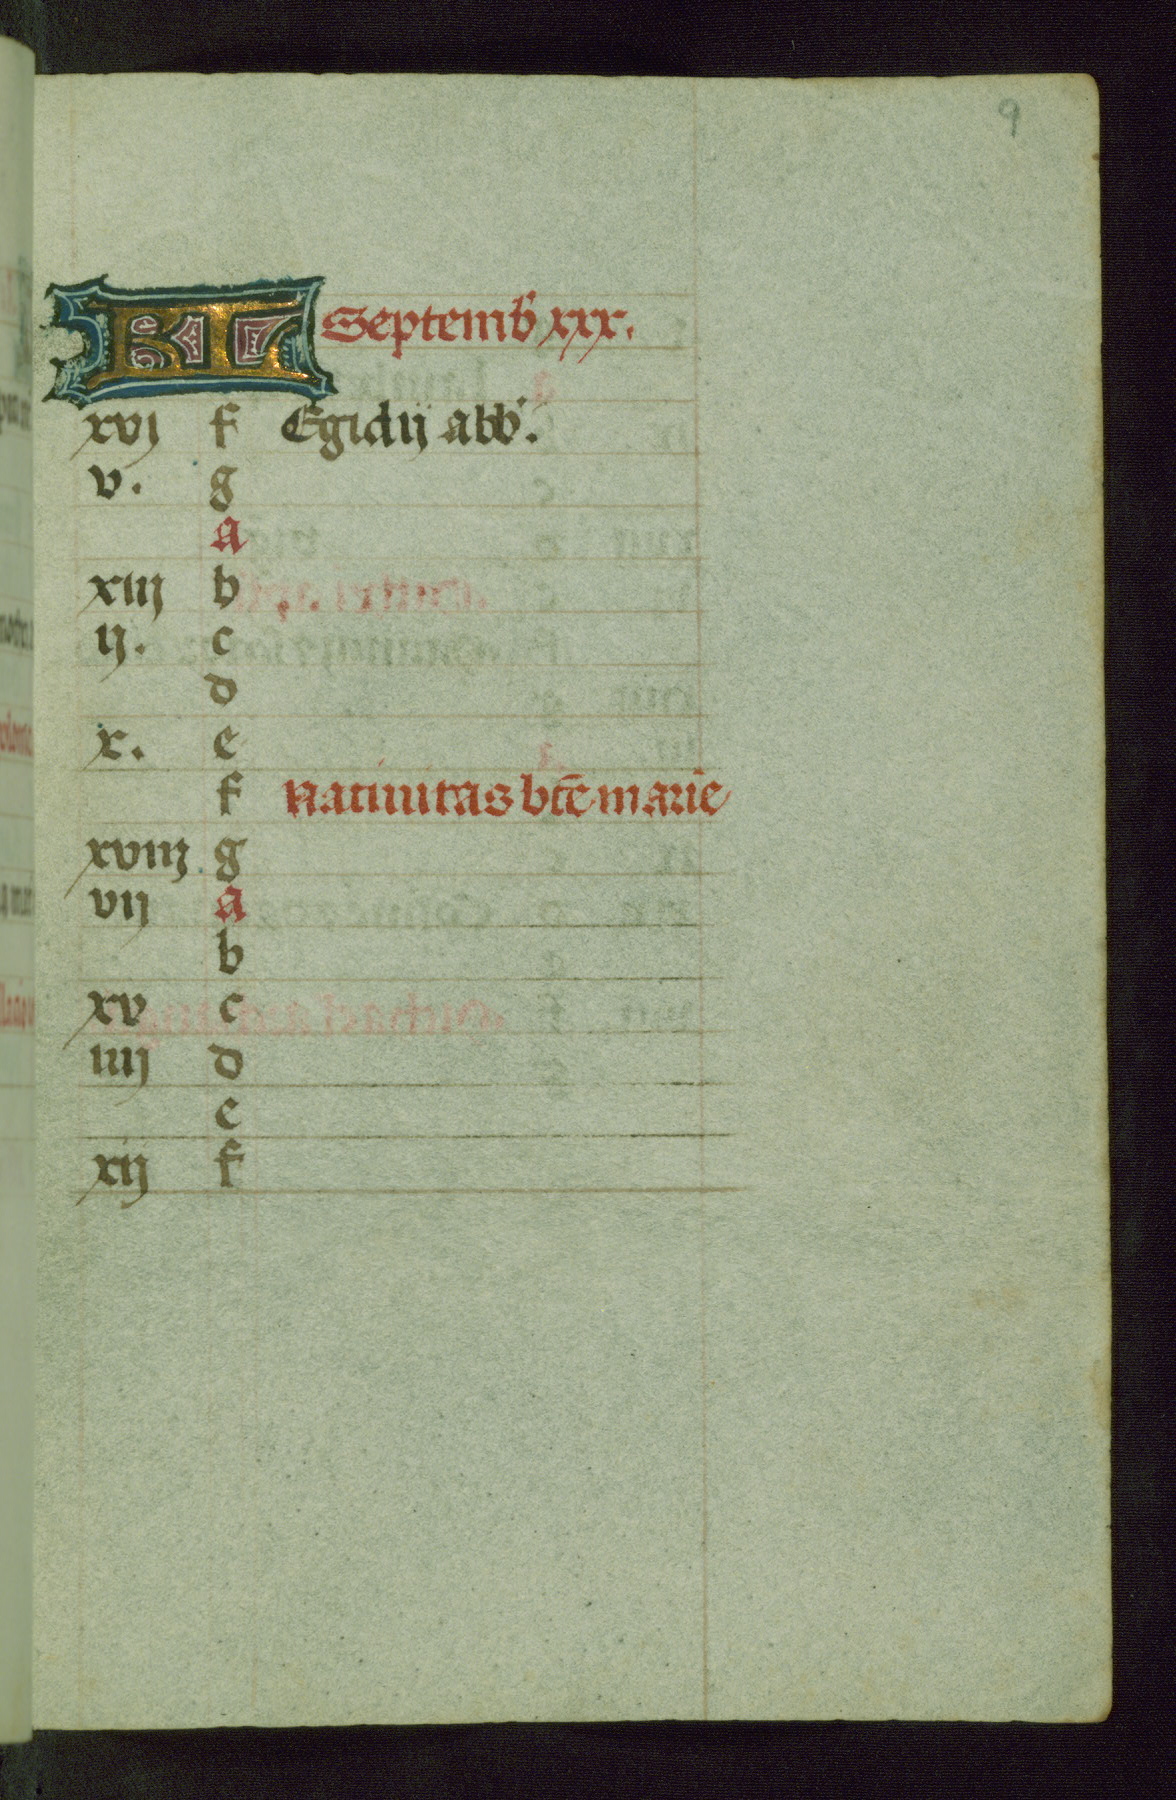 9
KL Septemb' xxx.
xvj f Egidij abb'.
v. g
a
xiij b
ij. c
d
x. e
f Natiuitas bte marie
xviij. g
vij a
b
xv c
iiij d
e
xij f